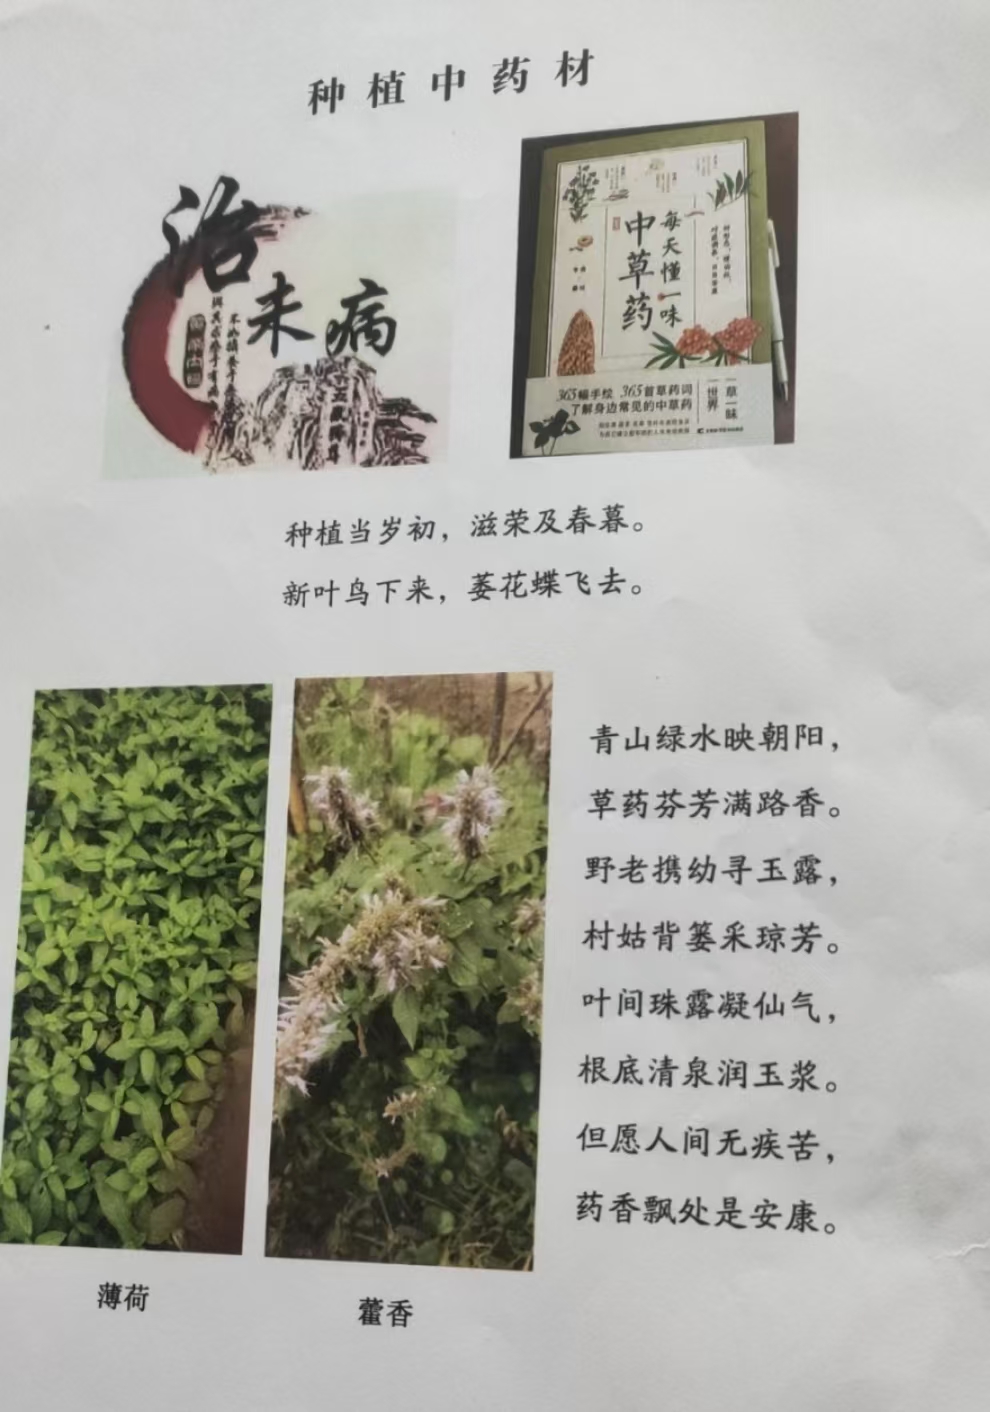 种植中药材
治未病
每天懂一味
中草药
365幅手绘 365首草药词
了解身边常见的中草药
一草一味
一世界
种植当岁初，滋荣及春暮。
新叶鸟下来，萎花蝶飞去。
青山绿水映朝阳，
草药芬芳满路香。
野老携幼寻玉露，
村姑背篓采琼芳。
叶间珠露凝仙气，
根底清泉润玉浆。
但愿人间无疾苦，
药香飘处是安康。
薄荷
藿香